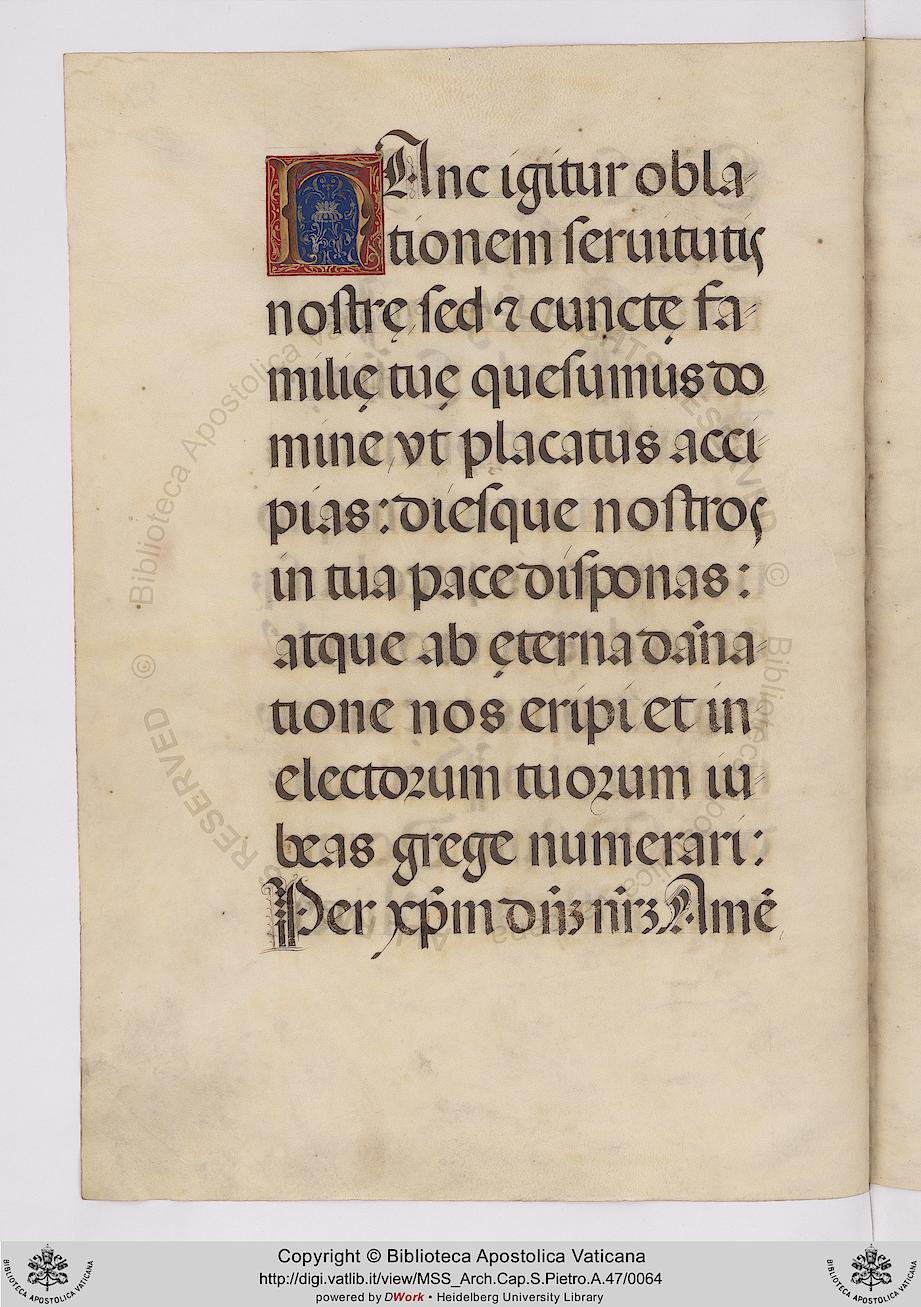 HAnc igitur obla-
tionem seruitutis
nostrę sed ⁊ cunctę fa-
milię tuę quesumus do
mine vt placatus acci-
pias: diesque nostros
in tua pace disponas:
atque ab ęterna dãna-
tione nos eripi et in
electorum tuorum iu-
beas grege numerari:
Per xp̃m dñʒ nr̃ʒ Amẽ
© Biblioteca Apostolica Vaticana
RESERVED
© Biblioteca Apostolica
BIBLIOTECA APOSTOLICA VATICANA
Copyright © Biblioteca Apostolica Vaticana
http://digi.vatlib.it/view/MSS_Arch.Cap.S.Pietro.A.47/0064
powered by DWork • Heidelberg University Library
BIBLIOTECA APOSTOLICA VATICANA